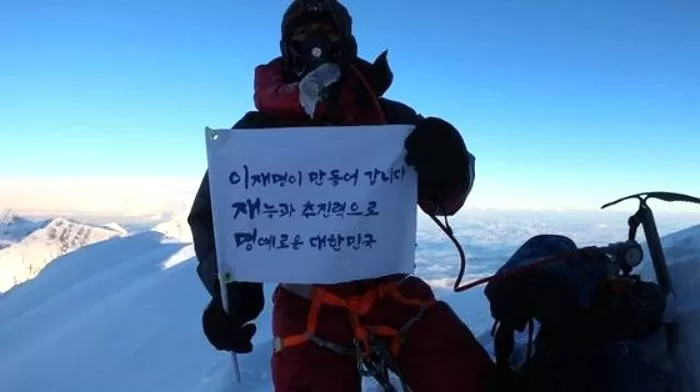 이재명이 만들어 갑니다
재능과 추진력으로
명예로운 대한민국